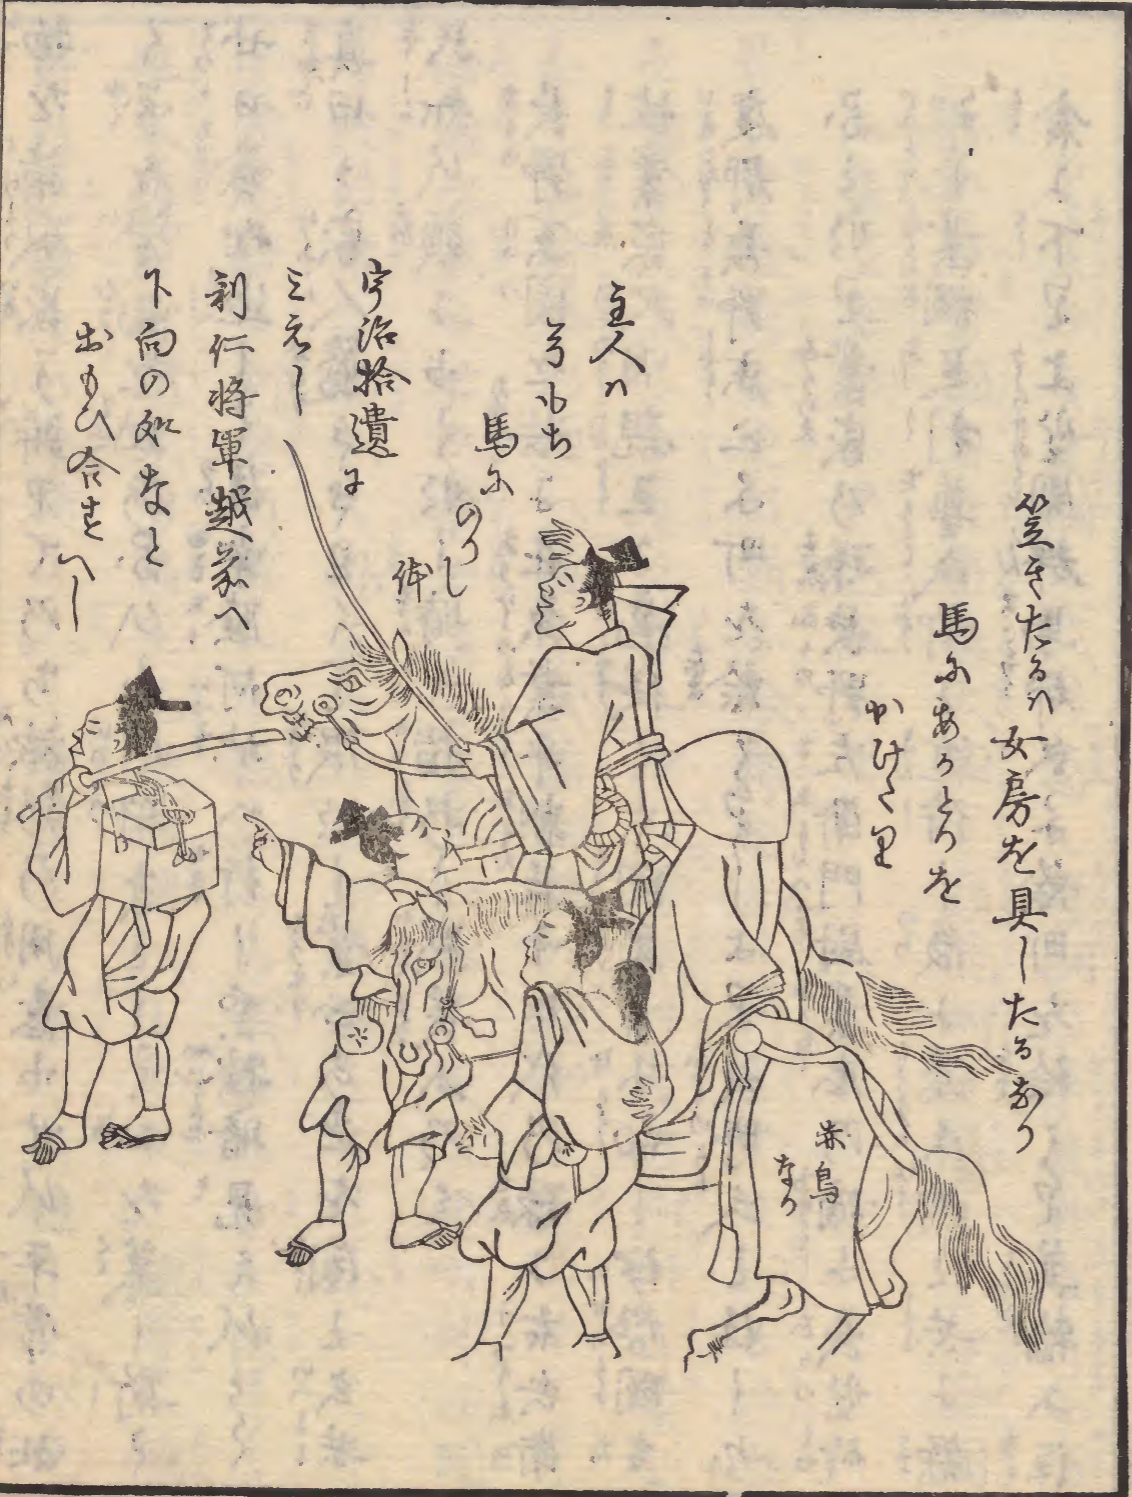 笠きたるハ女房を具したるなり
馬にあかとりを
かけたり
赤鳥
なり
主人ハ
弓もち
馬に
のりし
体
宇治拾遺に
ミえし
利仁将軍越前へ
下向の処なと
おもひ合すへし